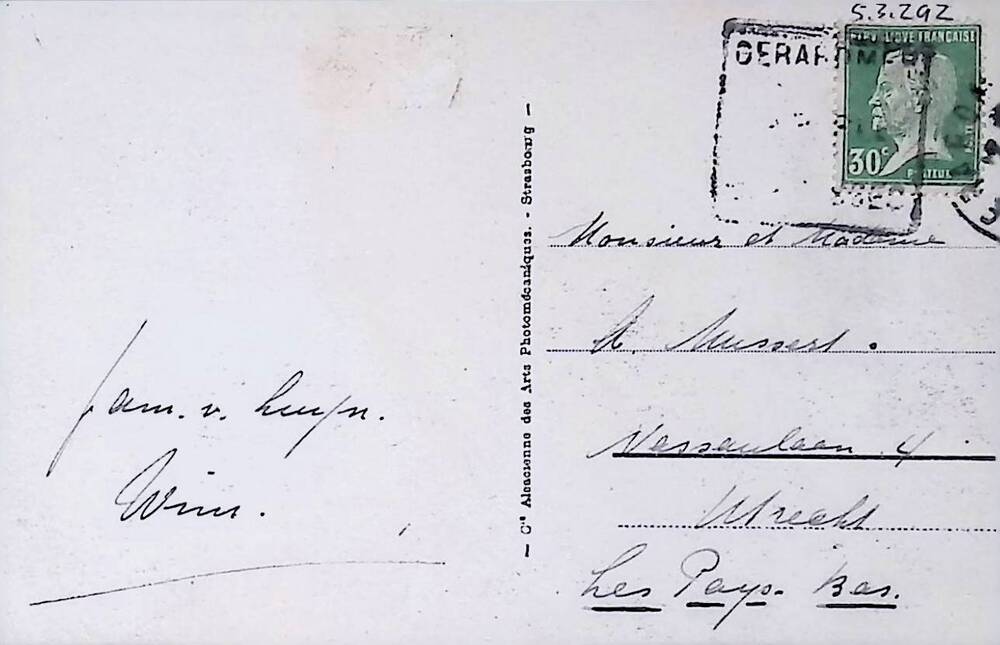 5.3.292
GERARDMER
REPUBLIQUE FRANÇAISE
30c
PASTEUR
Monsieur et Madame
A. Mussert.
Nassaulaan 4
Utrecht
Les Pays-Bas.
— Cie Alsacienne des Arts Photomécaniques. - Strasbourg —
fam. v. Luyn.
Wim.